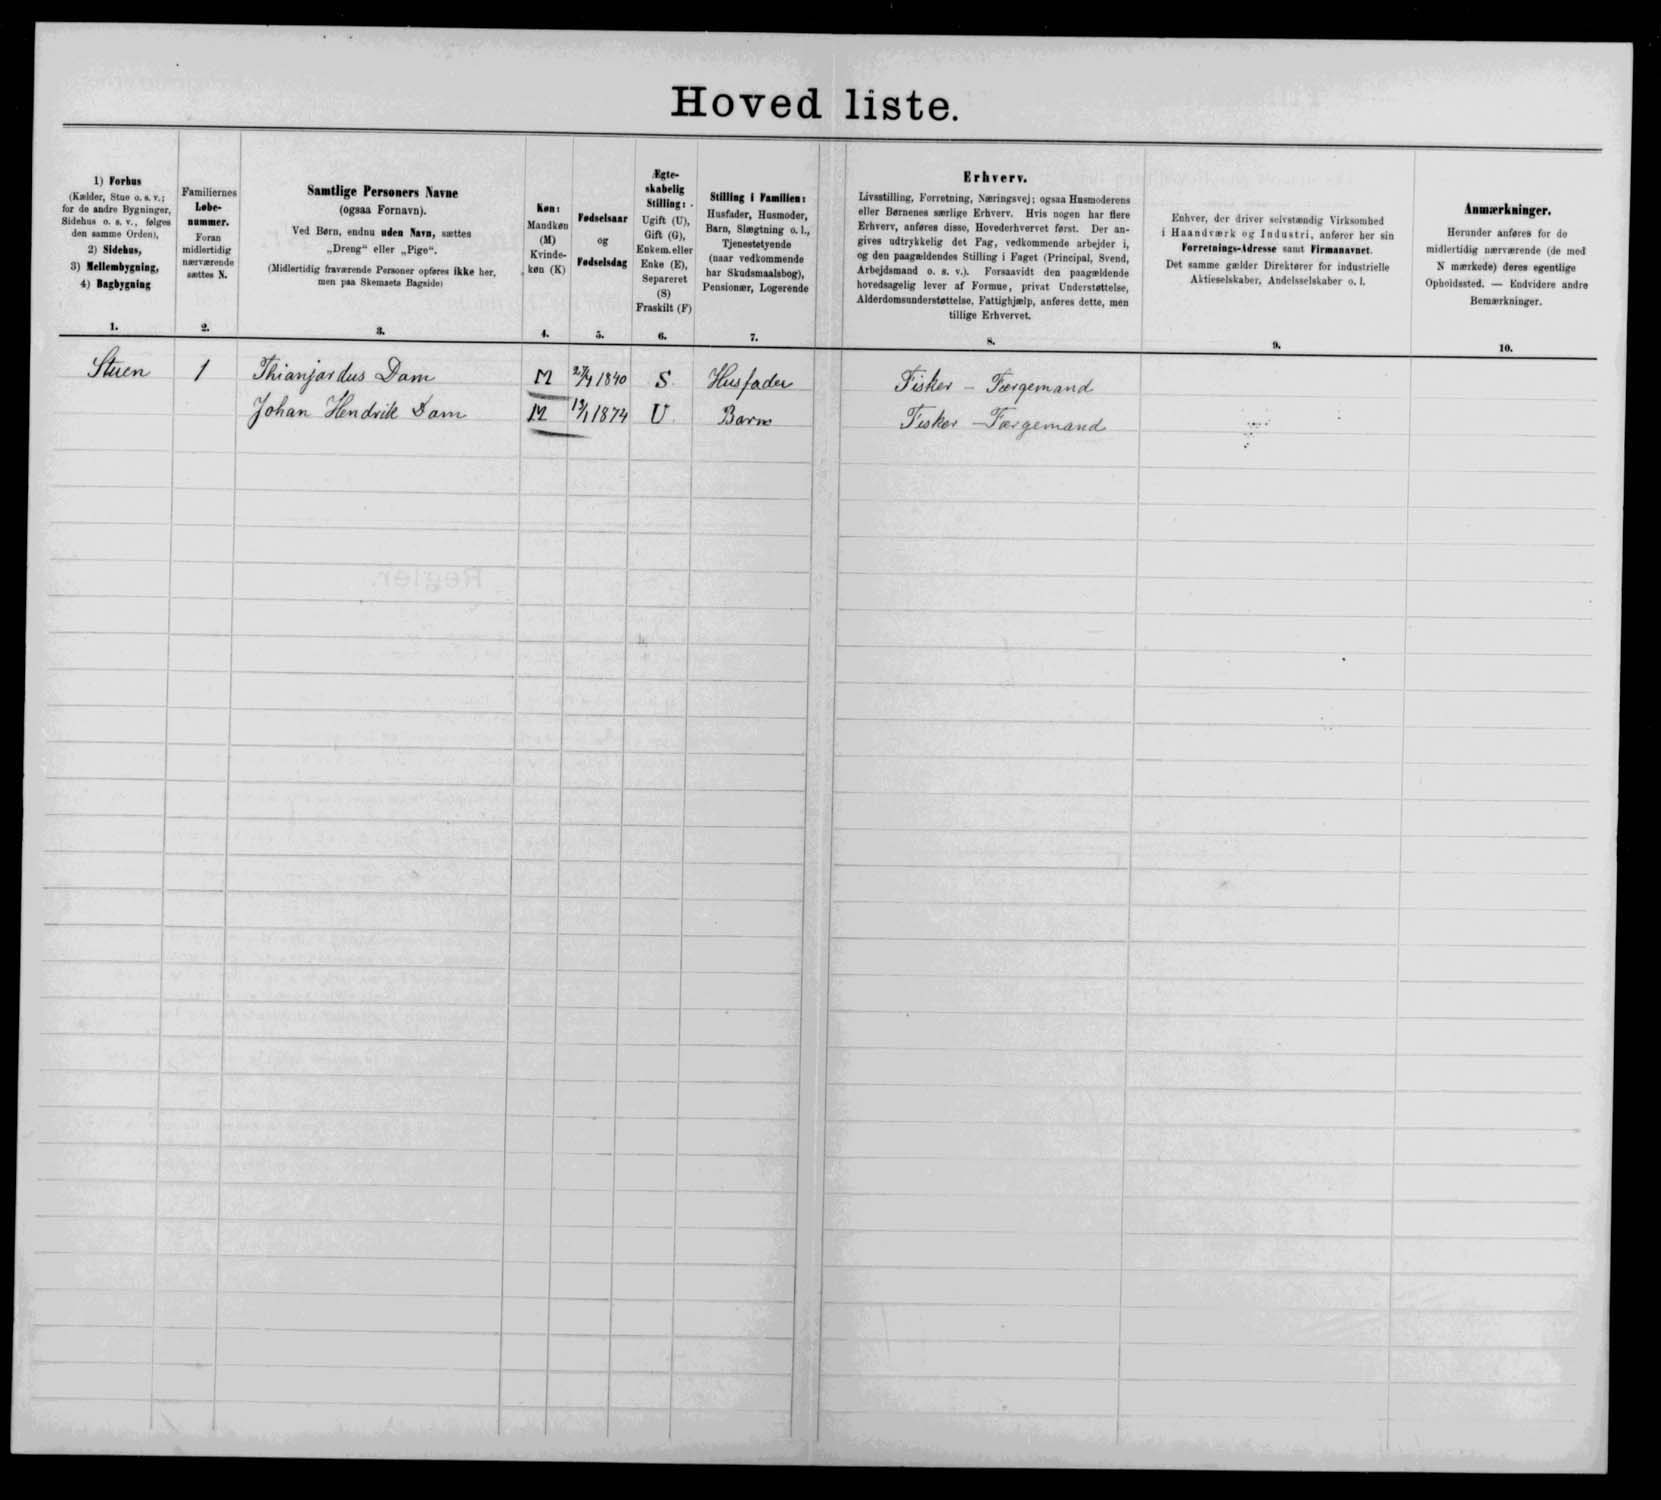 Hoved liste.
1) Forhus
(Kælder, Stue o. s. v.;
for de andre Bygninger,
Sidehus o. s. v., følges
den samme Orden),
2) Sidehus,
3) Mellembygning,
4) Bagbygning
1.
Familiernes
Løbe-
nummer.
Foran
midlertidig
nærværende
sættes N.
2.
Samtlige Personers Navne
(ogsaa Fornavn).
Ved Børn, endnu uden Navn, sættes
„Dreng“ eller „Pige“.
(Midlertidig fraværende Personer opføres ikke her,
men paa Skemaets Bagside)
3.
Køn:
Mandkøn
(M)
Kvinde-
køn (K)
4.
Fødselsaar
og
Fødselsdag
5.
Ægte-
skabelig
Stilling:
Ugift (U),
Gift (G),
Enkem. eller
Enke (E),
Separeret
(S)
Fraskilt (F)
6.
Stilling i Familien:
Husfader, Husmoder,
Barn, Slægtning o. l.,
Tjenestetyende
(naar vedkommende
har Skudsmaalsbog),
Pensionær, Logerende
7.
Erhverv.
Livsstilling, Forretning, Næringsvej; ogsaa Husmoderens
eller Børnenes særlige Erhverv. Hvis nogen har flere
Erhverv, anføres disse, Hovederhvervet først. Der an-
gives udtrykkelig det Fag, vedkommende arbejder i,
og den paagældendes Stilling i Faget (Principal, Svend,
Arbejdsmand o. s. v.). Forsaavidt den paagældende
hovedsagelig lever af Formue, privat Understøttelse,
Alderdomsunderstøttelse, Fattighjælp, anføres dette, men
tillige Erhvervet.
8.
Enhver, der driver selvstændig Virksomhed
i Haandværk og Industri, anfører her sin
Forretnings-Adresse samt Firmanavnet.
Det samme gælder Direktører for industrielle
Aktieselskaber, Andelsselskaber o. l.
9.
Anmærkninger.
Herunder anføres for de
midlertidig nærværende (de med
N mærkede) deres egentlige
Opholdssted. — Endvidere andre
Bemærkninger.
10.
Stuen 1 Thianjardus Dam M 27/4 1840 S. Husfader Fisker – Færgemand
Johan Hendrik Dam M 1874 U. Barn Fisker – Færgemand
Regler.